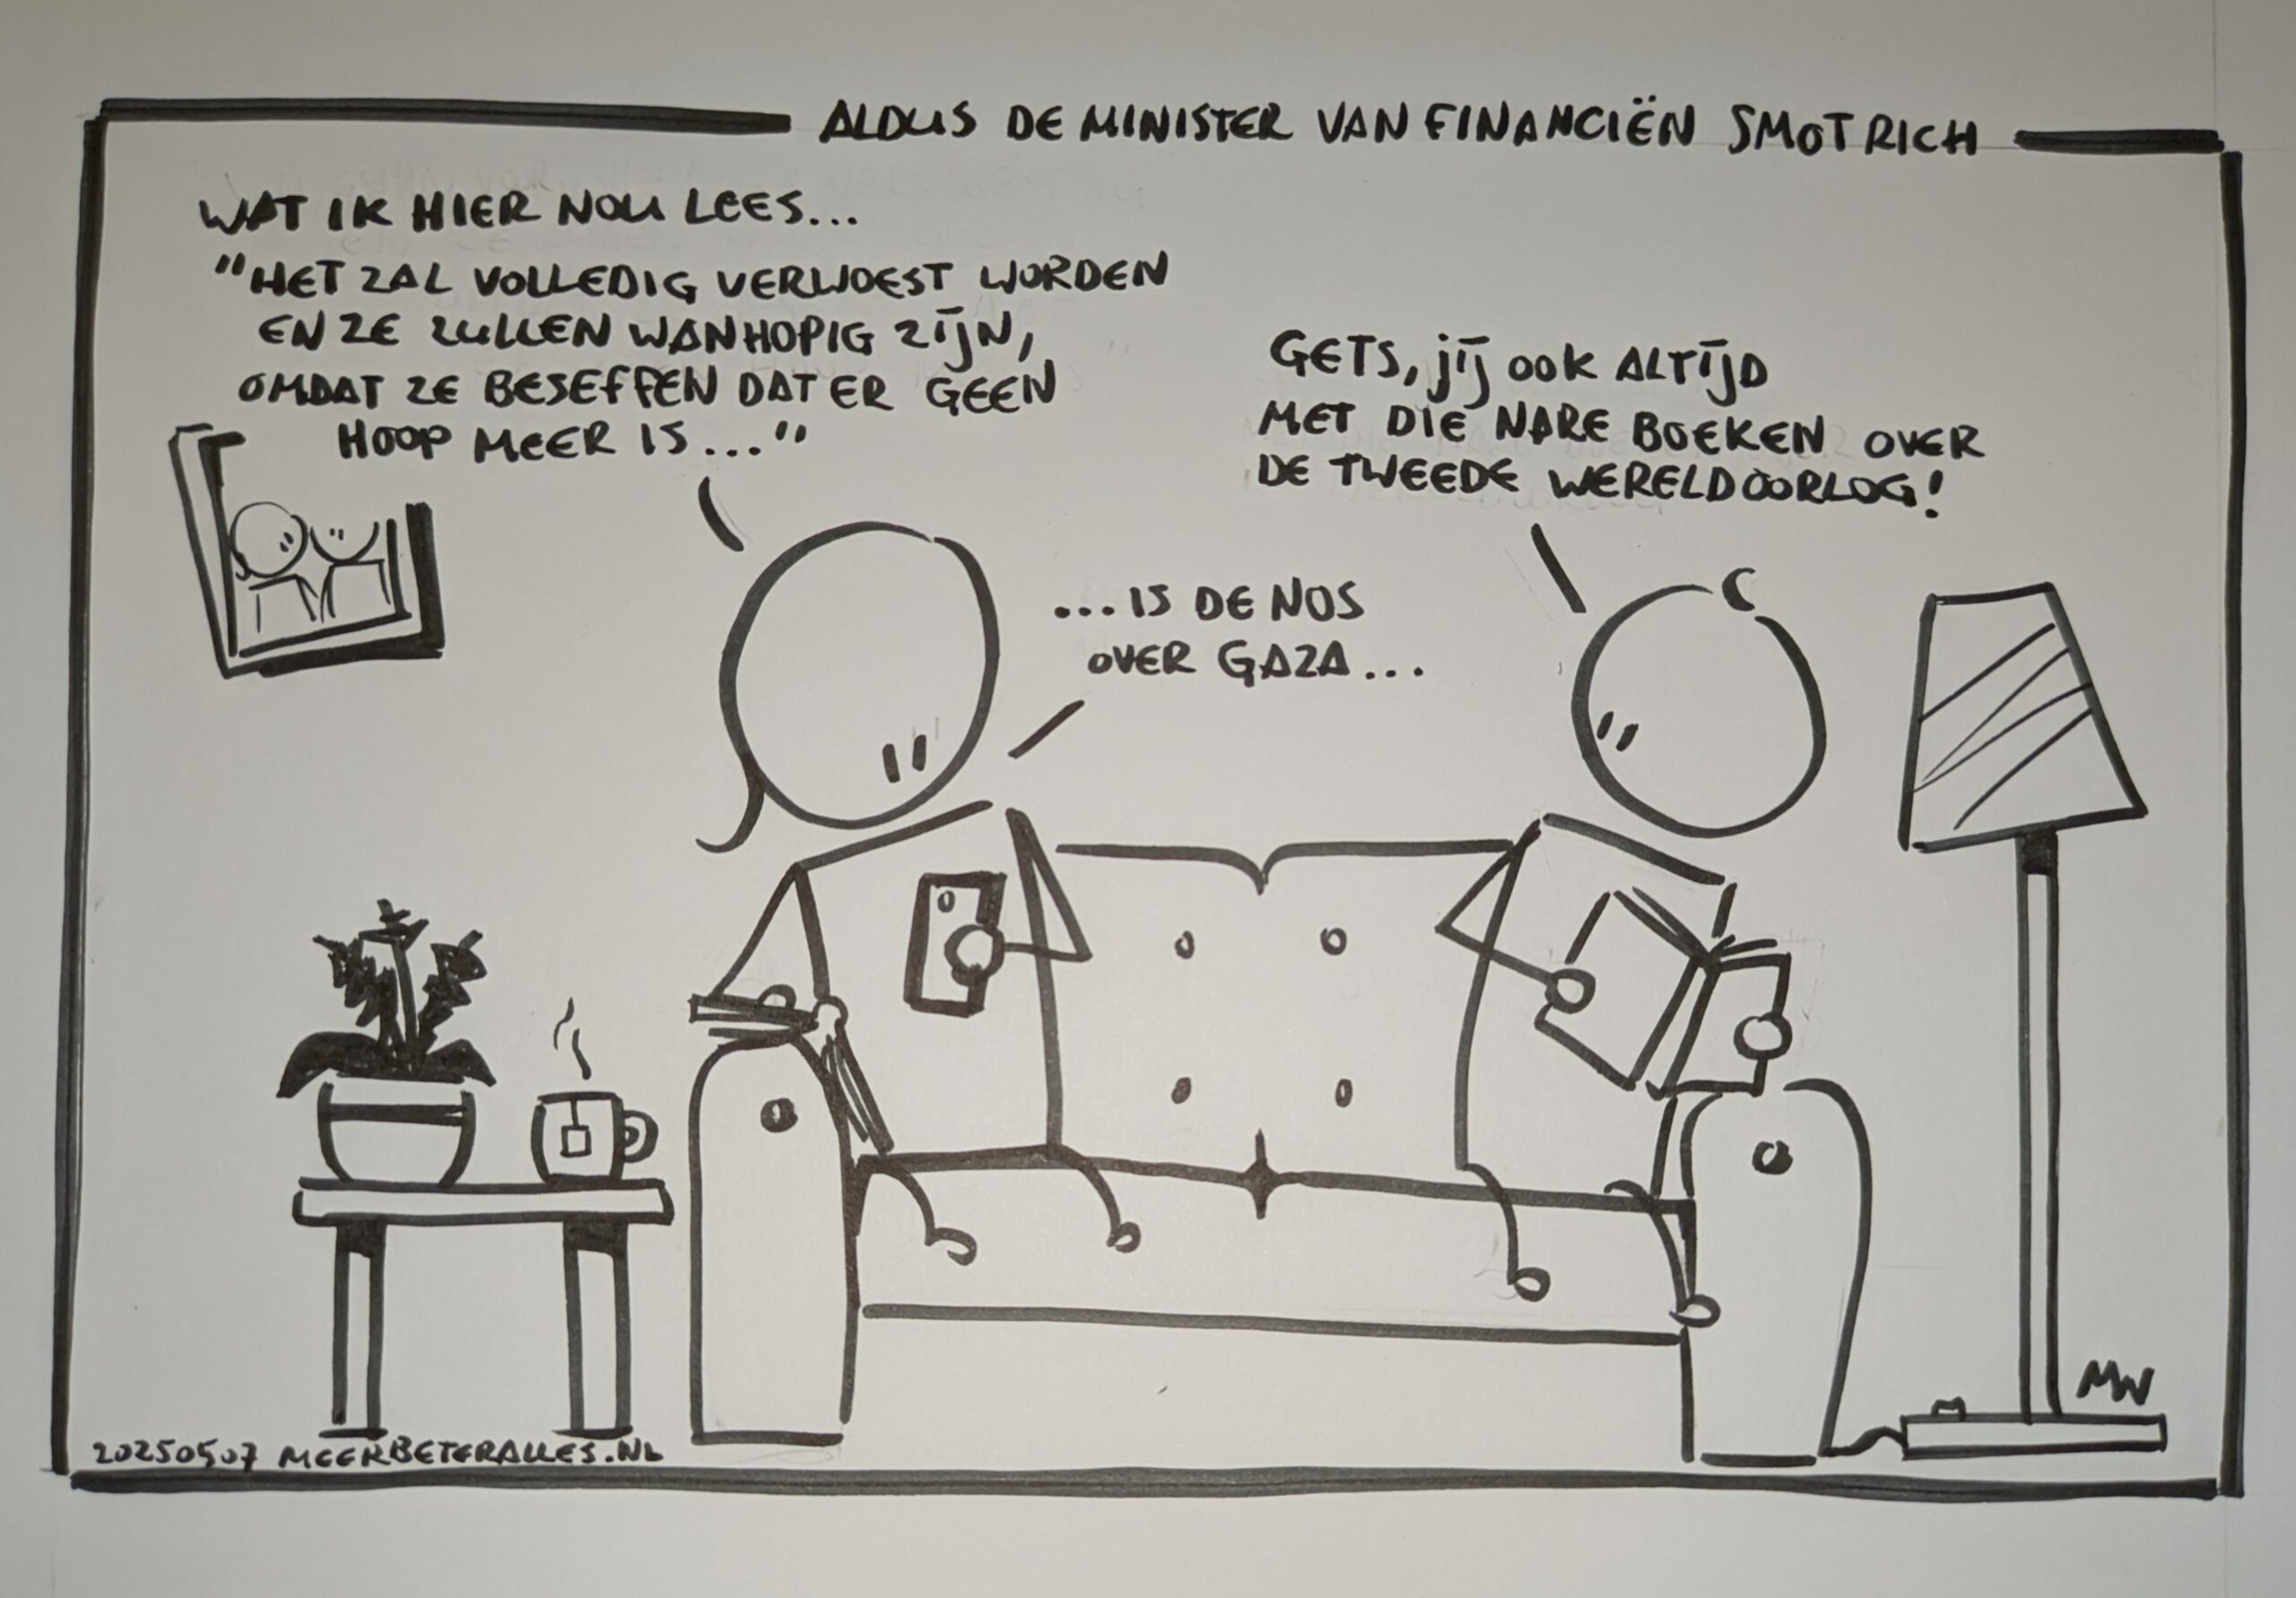 ALDUS DE MINISTER VAN FINANCIËN SMOTRICH
WAT IK HIER NOU LEES...
"HET ZAL VOLLEDIG VERWOEST WORDEN
EN ZE ZULLEN WANHOPIG ZIJN,
OMDAT ZE BESEFFEN DAT ER GEEN
HOOP MEER IS..."
GETS, JIJ OOK ALTIJD
MET DIE NARE BOEKEN OVER
DE TWEEDE WERELDOORLOG!
...IS DE NOS
OVER GAZA...
MW
20250507 MEERBETERALLES.NL